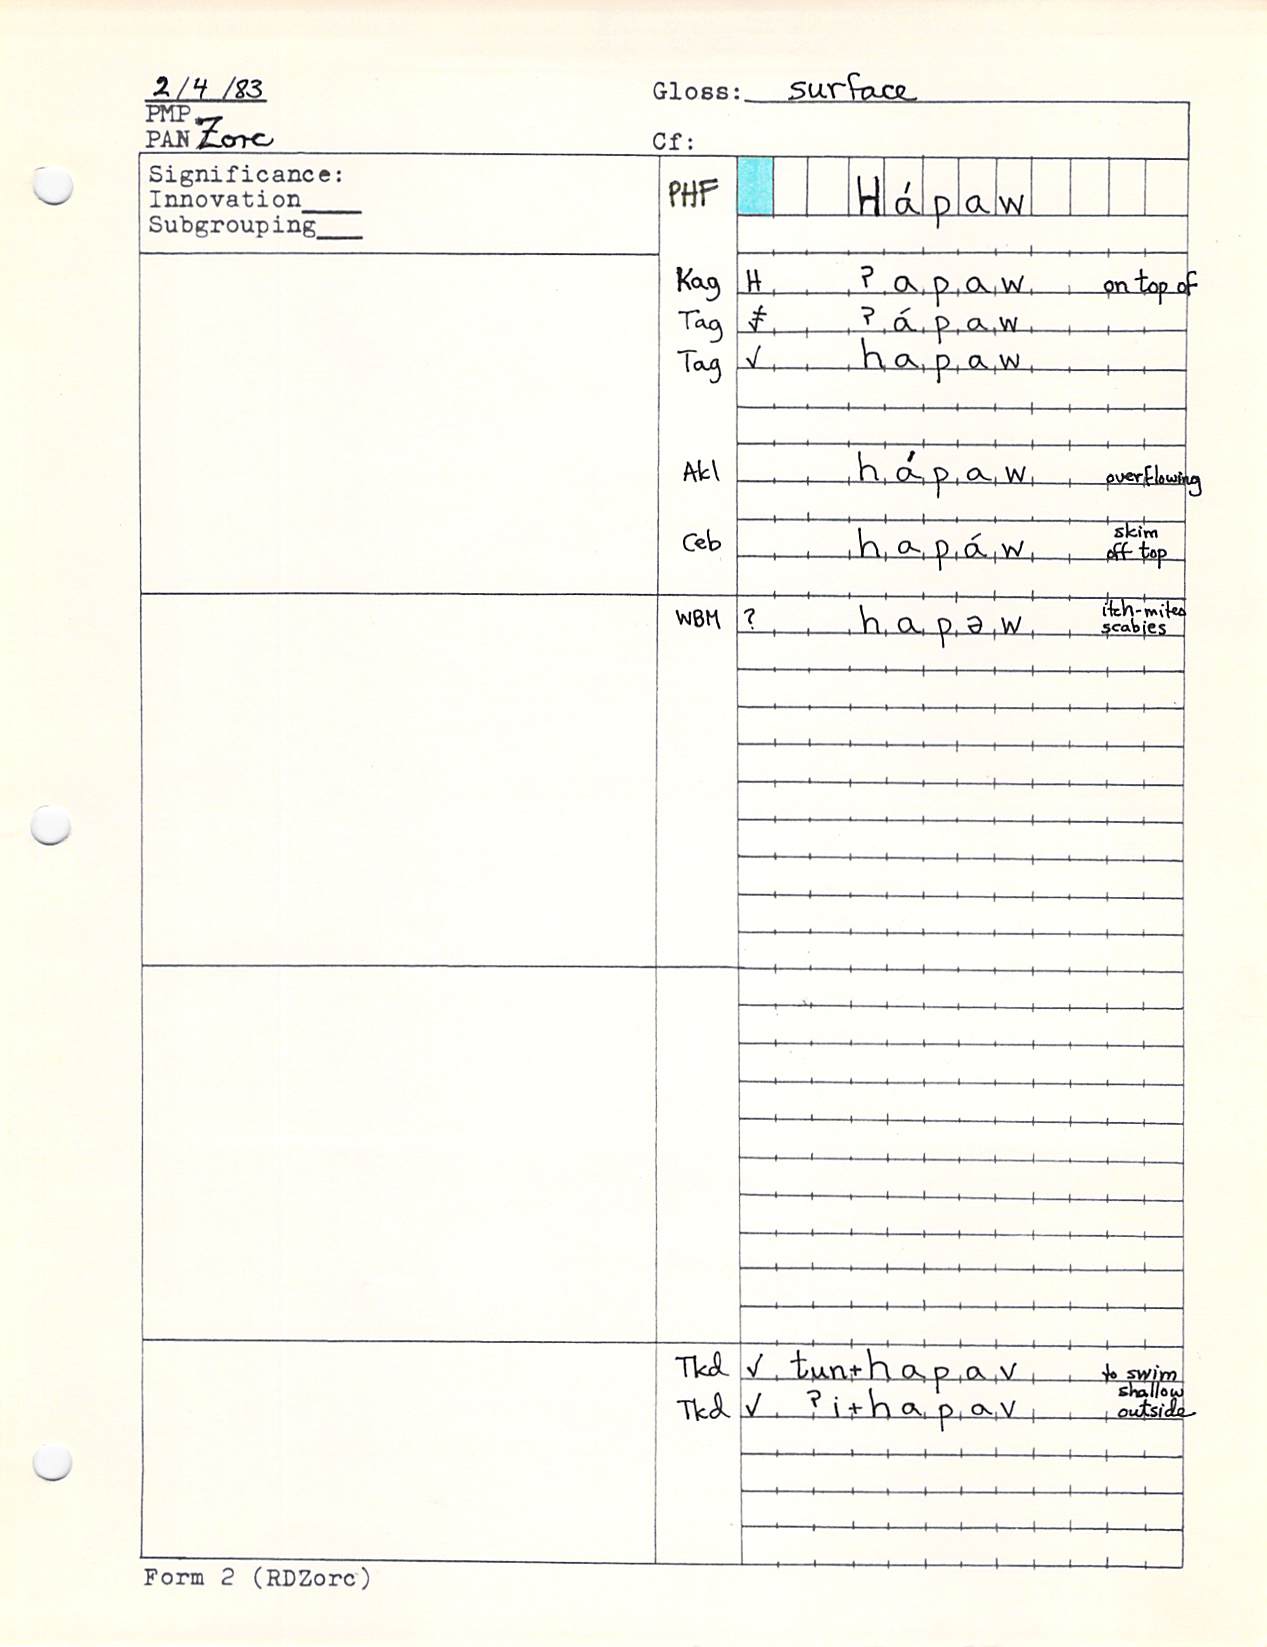 2/4/83 Gloss: surface
PMP
PAN Zorc Cf:
Significance:
Innovation____
Subgrouping___
PHF Hápaw
Kag H ʔapaw on top of
Tag ≠ ʔápaw
Tag ✓ hapaw
Akl hápaw overflowing
Ceb hapáw skim off top
WBM ? hapəw itch-mites scabies
Tkd ✓ tun+hapav to swim shallow
Tkd ✓ ʔi+hapav outside
Form 2 (RDZorc)